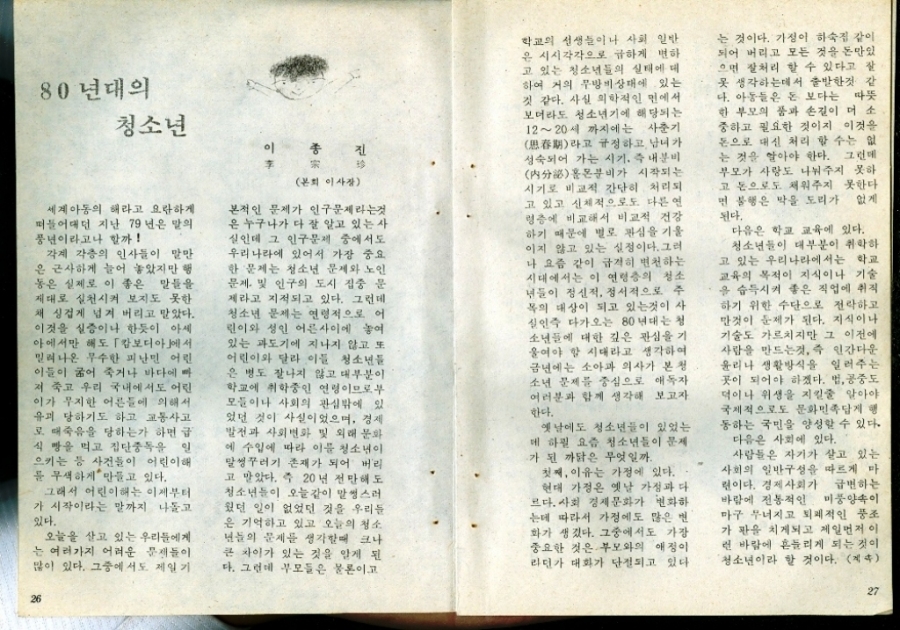 80년대의
청소년
이 종 진
李 宗 珍
(본회 이사장)
세계아동의 해라고 요란하게
떠들어대던 지난 79년은 말의
풍년이라고나 할까!
각계 각층의 인사들이 말만
은 근사하게 늘어 놓았지만 행
동은 실제로 이 좋은 말들을
제대로 실천시켜 보지도 못한
채 싱겁게 넘겨 버리고 말았다.
이것을 실증이나 한듯이 아세
아에서만 해도 「캄보디아」에서
밀려나온 무수한 피난민 어린
이들이 굶어 죽거나 바다에 빠
져 죽고 우리 국내에서도 어린
이가 무지한 어른들에 의해서
유괴 당하기도 하고 교통사고
로 떼죽음을 당하는가 하면 급
식 빵을 먹고 집단중독을 일
으키는 등 사건들이 어린이해
를 무색하게 만들고 있다.
그래서 어린이해는 이제부터
가 시작이라는 말까지 나돌고
있다.
오늘을 살고 있는 우리들에게
는 여러가지 어려운 문제들이
많이 있다. 그중에서도 제일 기
본적인 문제가 인구문제라는것
은 누구나가 다 잘 알고 있는 사
실인데 그 인구문제 중에서도
우리나라에 있어서 가장 중요
한 문제는 청소년 문제와 노인
문제 및 인구의 도시 집중 문
제라고 지적되고 있다. 그런데
청소년 문제는 연령적으로 어
린이와 성인 어른사이에 놓여
있는 과도기에 지나지 않고 또
어린이와 달라 이들 청소년들
은 병도 잘나지 않고 대부분이
학교에 취학중인 연령이므로부
모들이나 사회의 관심밖에 있
었던 것이 사실이었으며, 경제
발전과 사회변화 및 외래 문화
에 수입에 따라 이들 청소년이
말썽꾸러기 존재가 되어 버리
고 말았다. 즉 20년 전만해도
청소년들이 오늘같이 말썽스러
웠던 일이 없었던 것을 우리들
은 기억하고 있고 오늘의 청소
년들의 문제를 생각할때 크나
큰 차이가 있는 것을 알게 된
다. 그런데 부모들은 물론이고
26
학교의 선생들이나 사회 일반
은 시시각각으로 급하게 변하
고 있는 청소년들의 실태에 대
하여 거의 무방비상태에 있는
것 같다. 사실 의학적인 면에서
보더라도 청소년기에 해당되는
12～20세 까지에는 사춘기
(思春期)라고 규정하고 남녀가
성숙되어 가는 시기. 즉 내분비
(内分泌)홀몬분비가 시작되는
시기로 비교적 간단히 처리되
고 있고 신체적으로도 다른 연
령층에 비교해서 비교적 건강
하기 때문에 별로 관심을 기울
이지 않고 있는 실정이다. 그러
나 요즘 같이 급격히 변천하는
시대에서는 이 연령층의 청소
년들이 정신적, 정서적으로 주
목의 대상이 되고 있는것이 사
실인즉 다가오는 80년대는 청
소년들에 대한 깊은 관심을 기
울여야 할 시대라고 생각하여
금년에는 소아과 의사가 본 청
소년 문제를 중심으로 애독자
여러분과 함께 생각해 보고자
한다.
옛날에도 청소년들이 있었는
데 하필 요즘 청소년들이 문제
가 된 까닭은 무엇일까.
첫째, 이유는 가정에 있다.
현대 가정은 옛날 가정과 다
르다. 사회 경제문화가 변화하
는데 따라서 가정에도 많은 변
화가 생겼다. 그중에서도 가장
중요한 것은 부모와의 애정이
라던가 대화가 단절되고 있다
는 것이다. 가정이 하숙집 같이
되어 버리고 모든 것을 돈만있
으면 잘처리 할 수 있다고 잘
못 생각하는데서 출발한것 같
다. 아동들은 돈 보다는 따뜻
한 부모의 품과 손길이 더 소
중하고 필요한 것이지 이것을
돈으로 대신 처리 할 수는 없
는 것을 알아야 한다. 그런데
부모가 사랑도 나눠주지 못하
고 돈으로도 채워주지 못한다
면 불행은 막을 도리가 없게
된다.
다음은 학교 교육에 있다.
청소년들이 대부분이 취학하
고 있는 우리나라에서는 학교
교육의 목적이 지식이나 기술
을 습득시켜 좋은 직업에 취직
하기 위한 수단으로 전락하고
만것이 문제가 된다. 지식이나
기술도 가르치지만 그 이전에
사람을 만드는것, 즉 인간다운
윤리나 생활방식을 일러주는
곳이 되어야 하겠다. 법, 공중도
덕이나 위생을 지킬줄 알아야
국제적으로도 문화민족답게 행
동하는 국민을 양성할 수 있다.
다음은 사회에 있다.
사람들은 자기가 살고 있는
사회의 일반구성을 따르게 마
련이다. 경제사회가 급변하는
바람에 전통적인 미풍양속이
마구 무너지고 퇴폐적인 풍조
가 판을 치게되고 제일먼저 이
런 바람에 흔들리게 되는 것이
청소년이라 할 것이다. (계속)
27